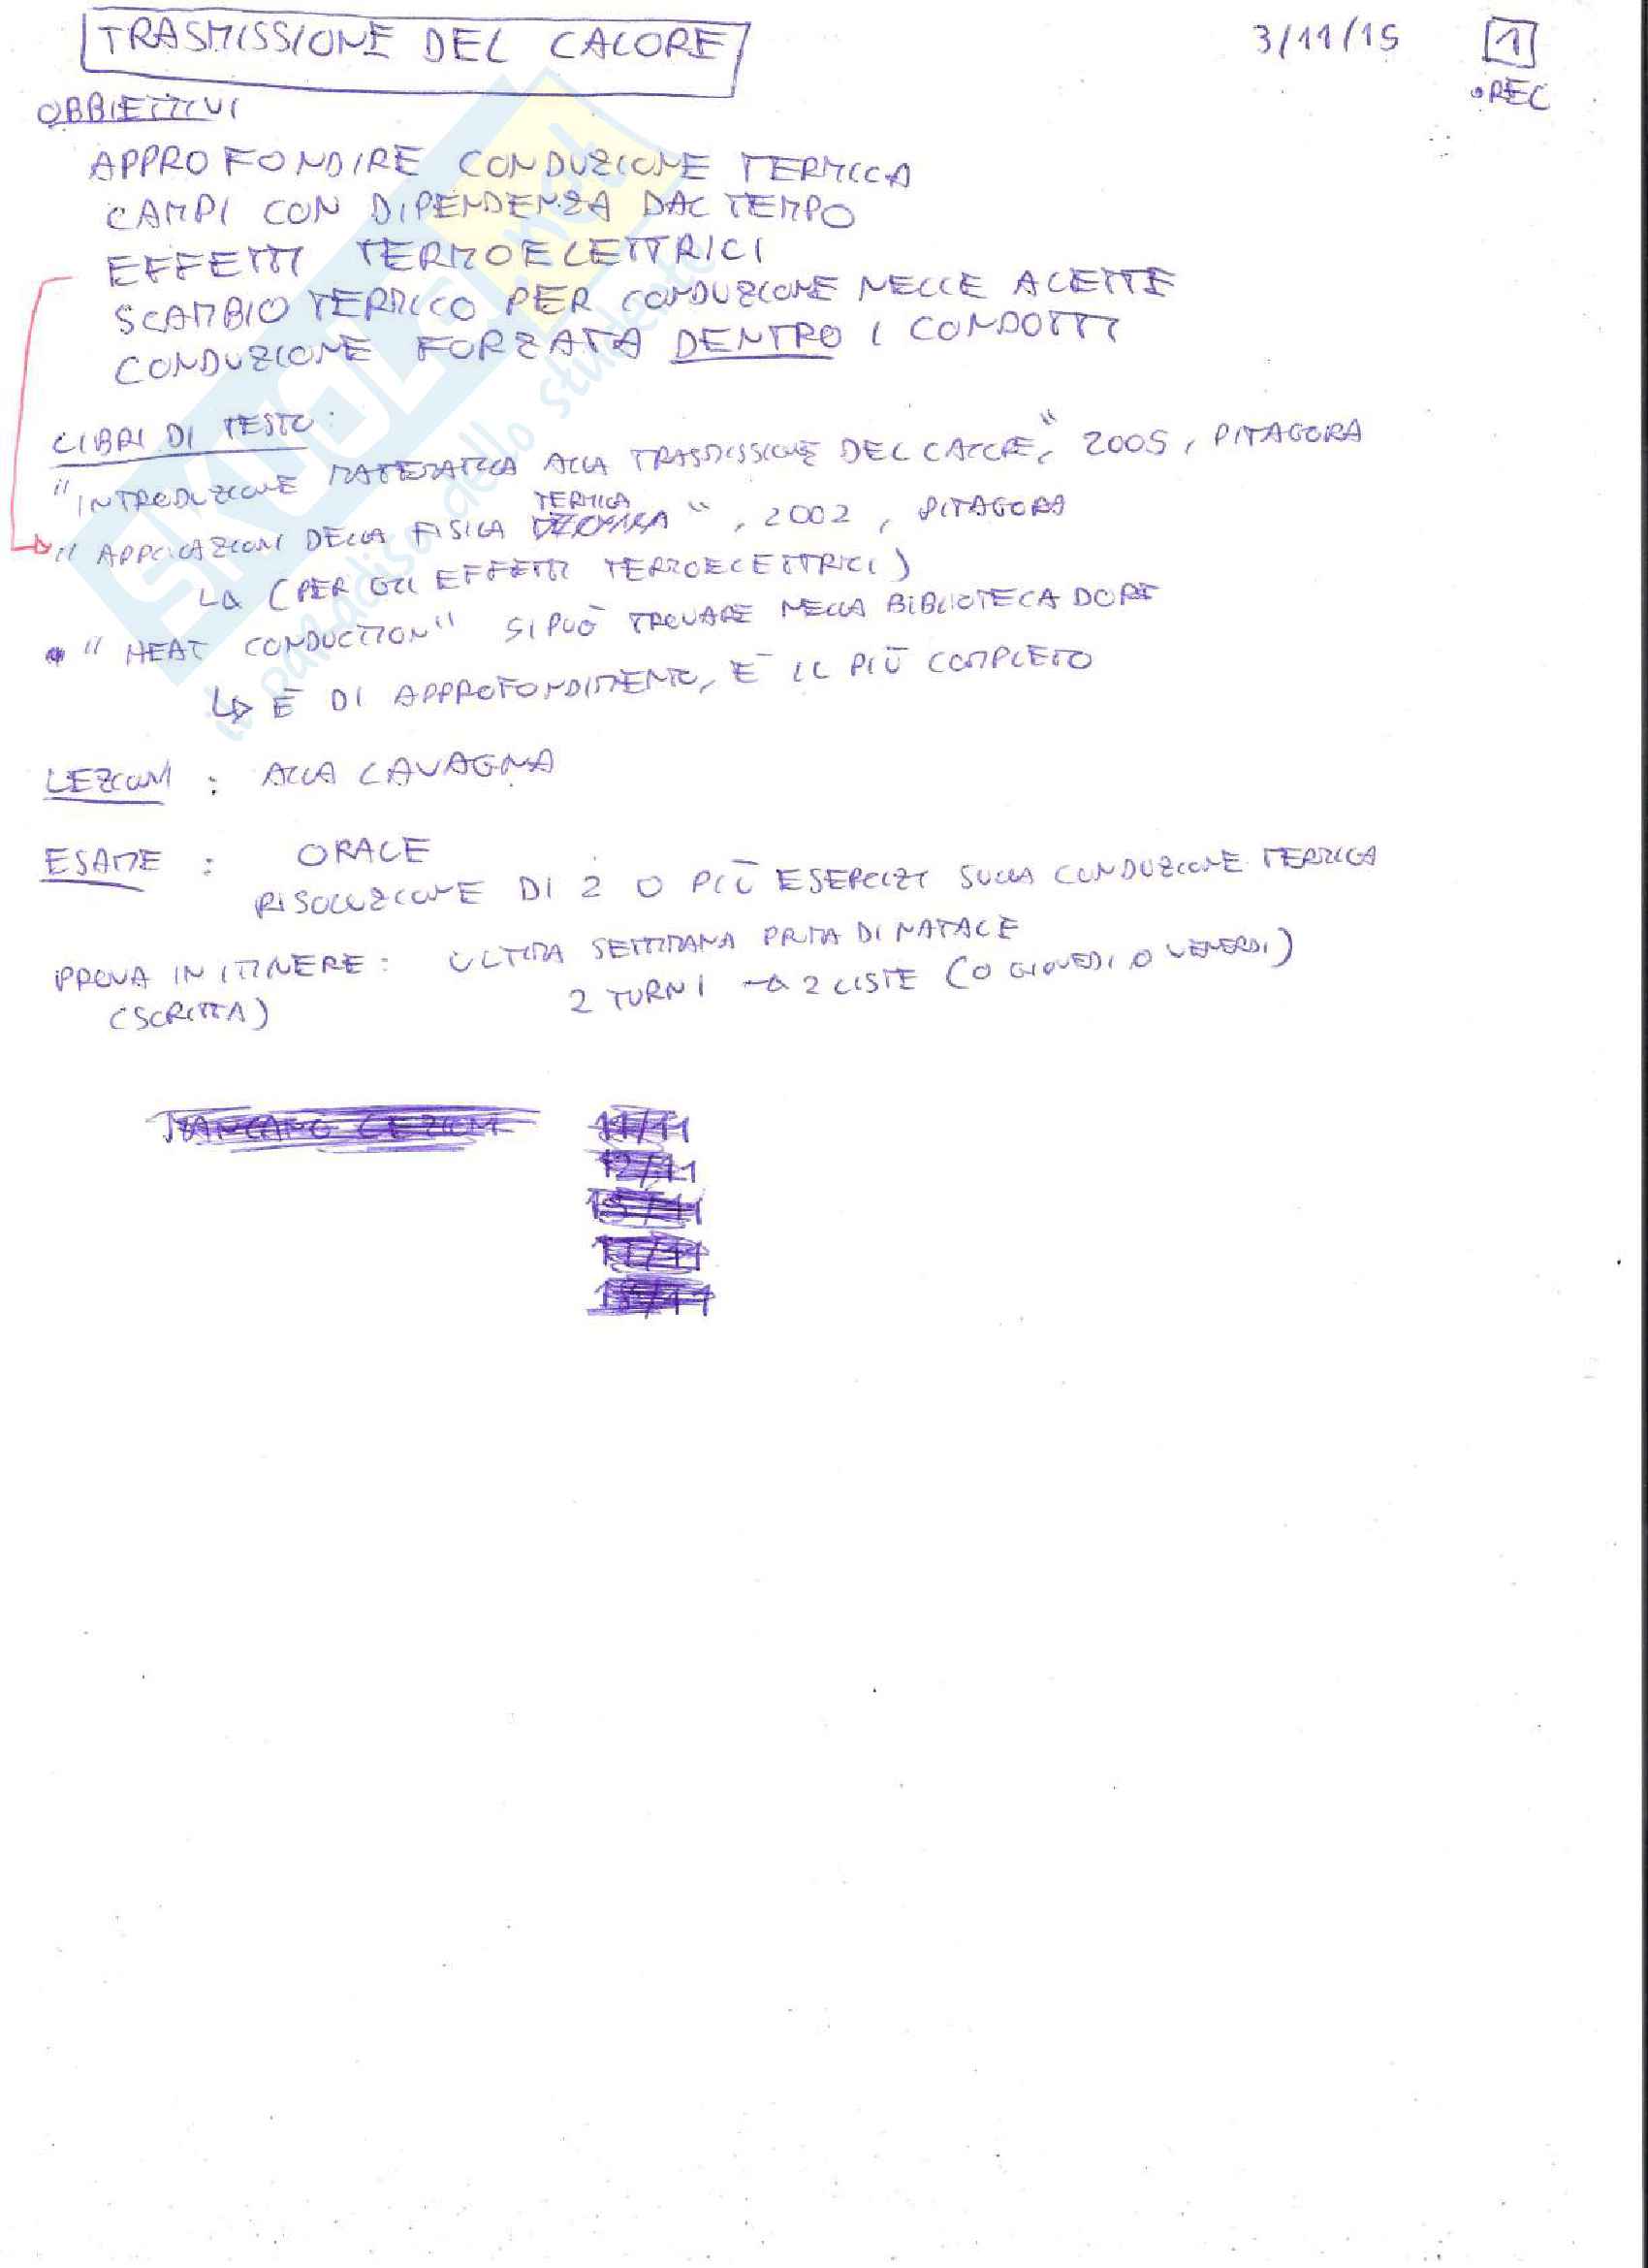 TRASMISSIONE DEL CALORE
3/11/15
1
•REC
OBBIETTIVI
APPROFONDIRE CONDUZIONE TERMICA
CAMPI CON DIPENDENZA DAL TEMPO
EFFETTI TERMOELETTRICI
SCAMBIO TERMICO PER CONDUZIONE NELLE ALETTE
CONDUZIONE FORZATA DENTRO I CONDOTTI
LIBRI DI TESTO:
"INTRODUZIONE MATEMATICA ALLA TRASMISSIONE DEL CALORE", 2005, PITAGORA
"APPLICAZIONI DELLA FISICA TERMICA", 2002, PITAGORA
↳ (PER GLI EFFETTI TERMOELETTRICI)
• "HEAT CONDUCTION" SI PUÒ TROVARE NELLA BIBLIOTECA DORE
↳ È DI APPROFONDIMENTO, È IL PIÙ COMPLETO
LEZIONI : ALLA LAVAGNA
ESAME : ORALE
RISOLUZIONE DI 2 O PIÙ ESERCIZI SULLA CONDUZIONE TERMICA
PROVA IN ITINERE: ULTIMA SETTIMANA PRIMA DI NATALE
(SCRITTA) 2 TURNI → 2 LISTE (O GIOVEDI O VENERDI)
11/11
12/11
SKUOLA.net
il paradiso dello studente